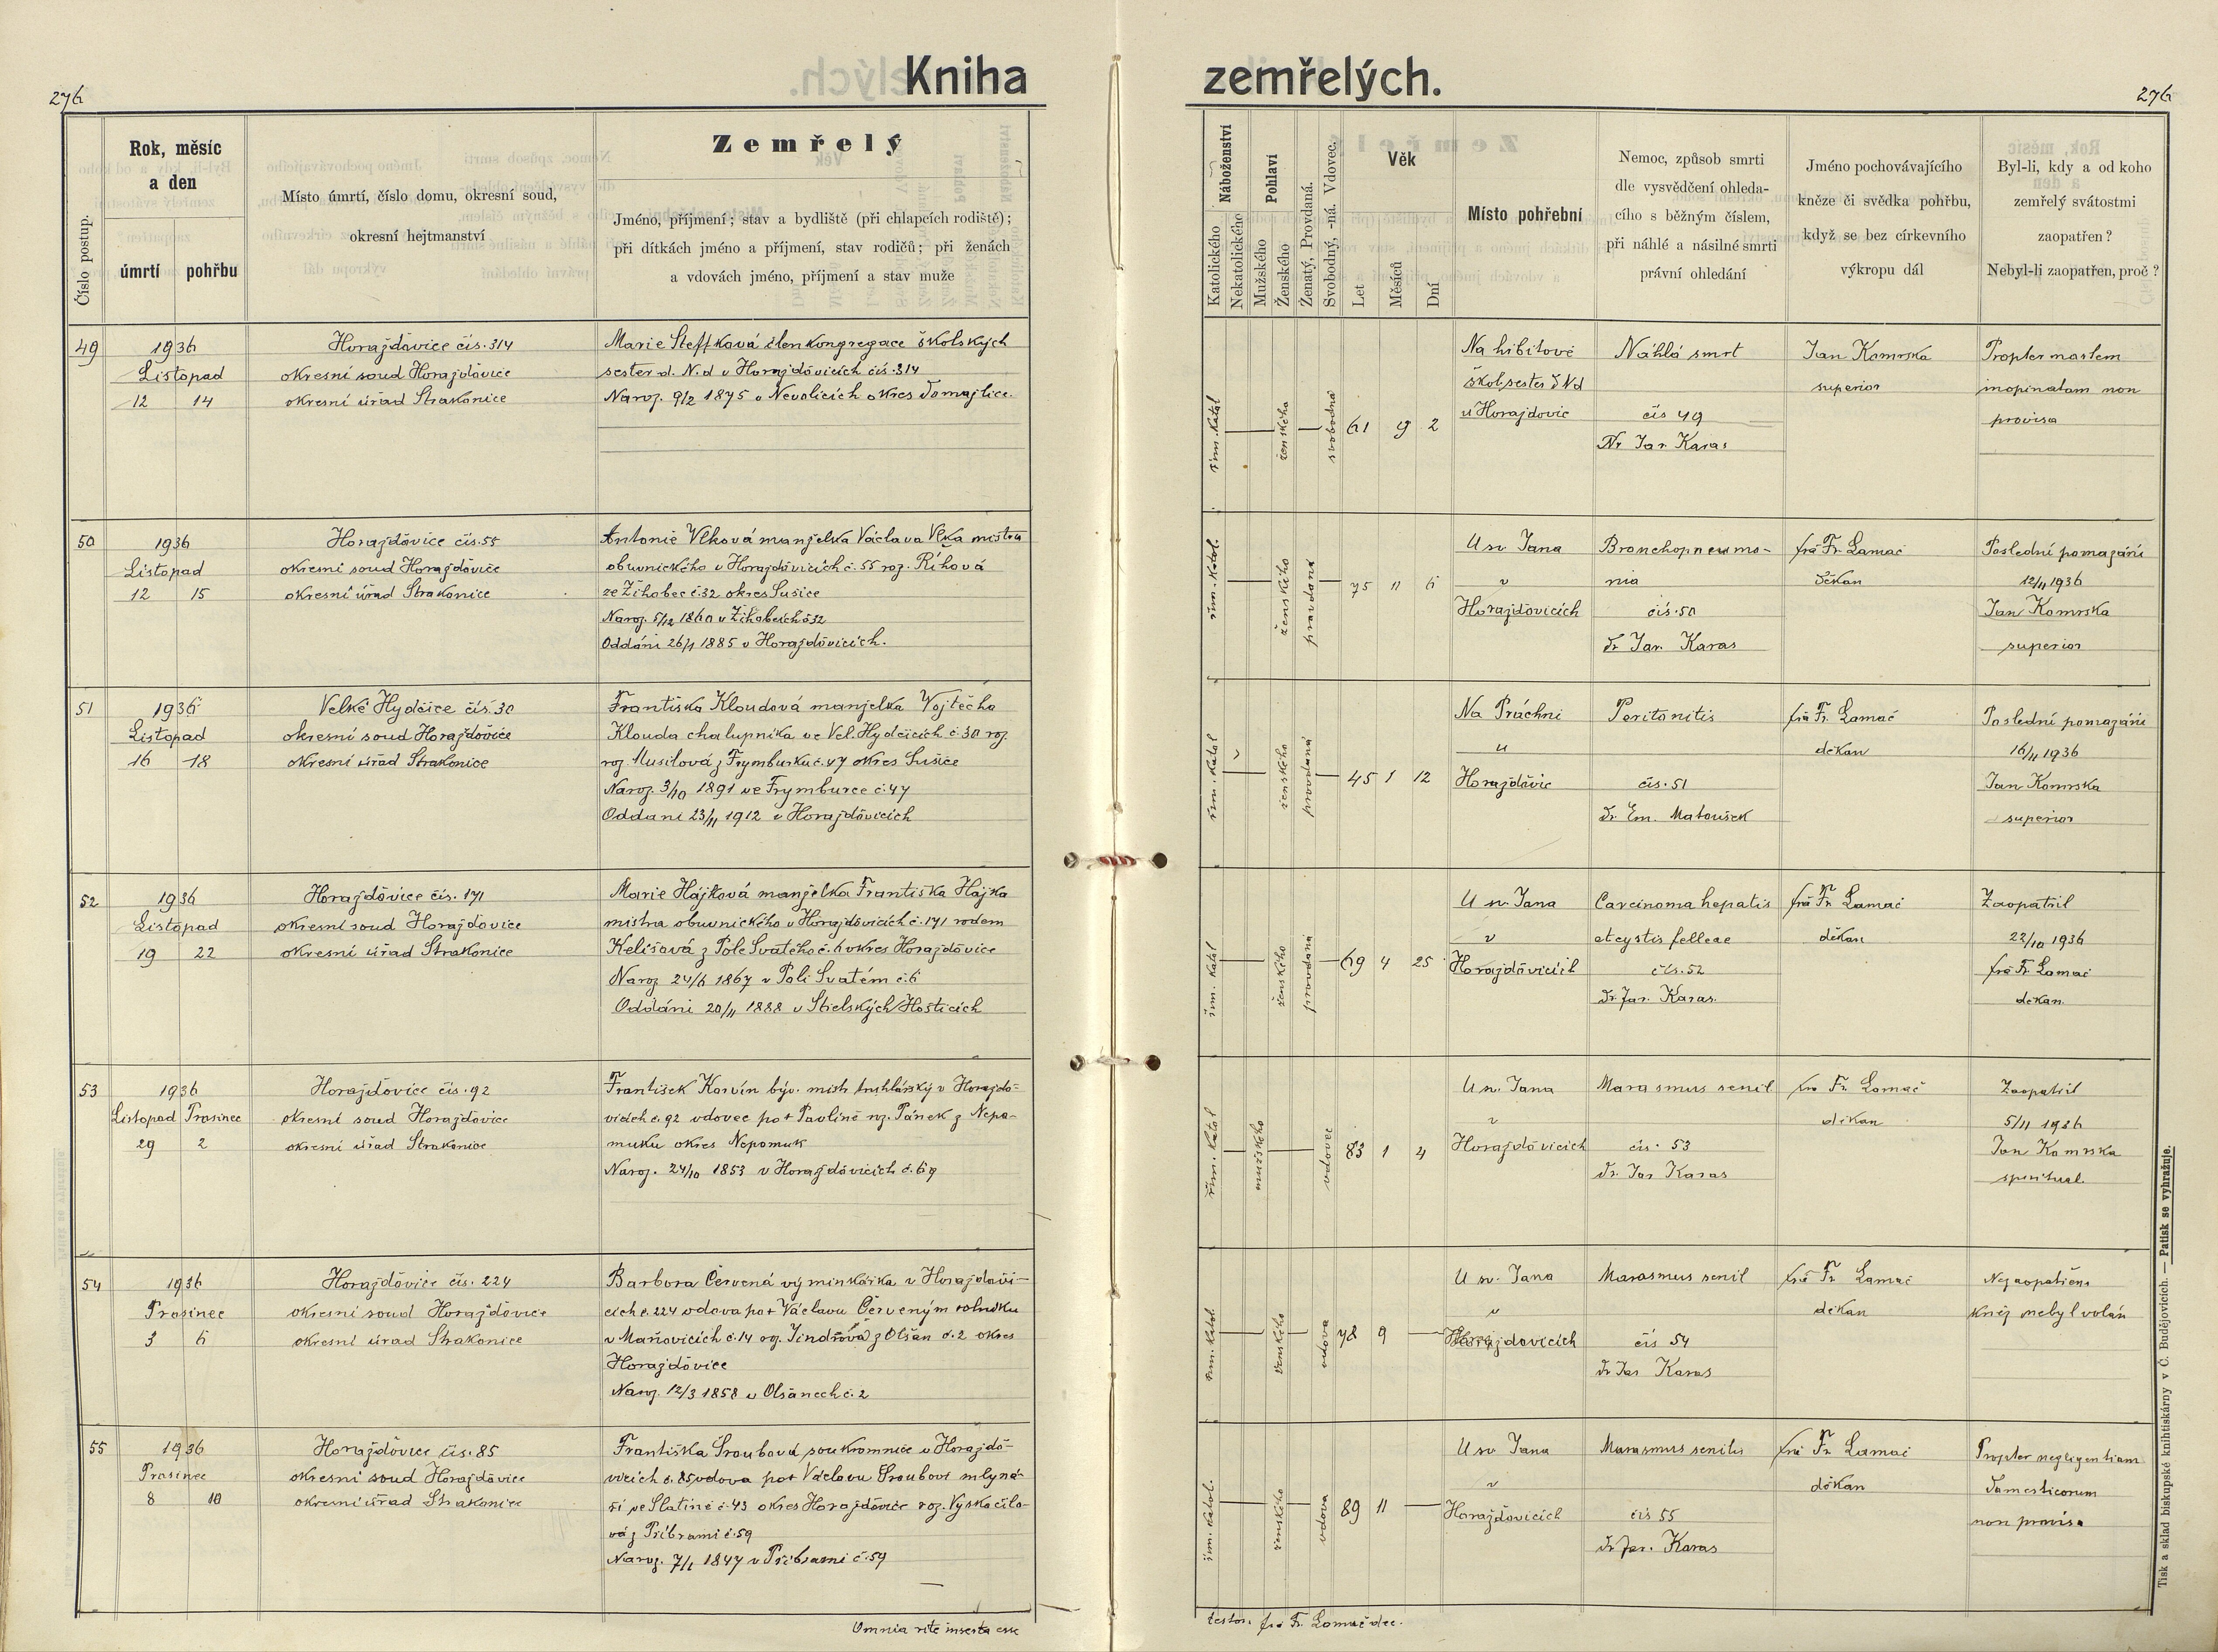 276
Kniha zemřelých.
276
Číslo postup.
Rok, měsíc
a den
úmrtí
pohřbu
Místo úmrtí, číslo domu, okresní soud,
okresní hejtmanství
Zemřelý
Jméno, příjmení; stav a bydliště (při chlapcích rodiště);
při dítkách jméno a příjmení, stav rodičů; při ženách
a vdovách jméno, příjmení a stav muže
Náboženství
Katolického
Nekatolického
Pohlaví
Mužského
Ženského
Ženatý, Provdaná.
Svobodný, -ná. Vdovec.
Věk
Let
Měsíců
Dní
Místo pohřební
Nemoc, způsob smrti
dle vysvědčení ohleda-
cího s běžným číslem,
při náhlé a násilné smrti
právní ohledání
Jméno pochovávajícího
kněze či svědka pohřbu,
když se bez církevního
výkropu dál
Byl-li, kdy a od koho
zemřelý svátostmi
zaopatřen?
Nebyl-li zaopatřen, proč?
49
1936
Listopad
12 14
Horažďovice čís. 314
okresní soud Horažďovice
okresní úřad Strakonice
Marie Steffková člen kongregace školských
sester d. N. d v Horažďovicích čís. 314
Naroz. 9/2 1875 v Nevolicích okres Domažlice.
řím. katol
ženského
svobodná
61 9 2
Na hřbitově
škol. sester d Nd
u Horažďovic
Náhlá smrt
čís 49
Dr Jar. Karas
Jan Komrska
superior
Propter mortem
inopinatam non
provisa
50
1936
Listopad
12 15
Horažďovice čís. 55
okresní soud Horažďovice
okresní úřad Strakonice
Antonie Vlková manželka Václava Vlka mistra
obuvnického v Horažďovicích č. 55 roz. Říhová
ze Žihobec č. 32 okres Sušice
Naroz. 5/12 1860 v Žihobcích č 32
Oddáni 26/1 1885 v Horažďovicích.
řím. katol.
ženského
provdaná
75 11 6
U sv. Jana
v
Horažďovicích
Bronchopneumo-
nia
čís. 50
Dr Jar. Karas
fra Fr. Lomač
děkan
Poslední pomazání
12/11 1936
Jan Komrska
superior
51
1936
Listopad
16 18
Velké Hydčice čís. 30
okresní soud Horažďovice
okresní úřad Strakonice
Františka Kloudová manželka Vojtěcha
Klouda chalupníka ve Vel. Hydčicích č. 30 roz.
roz. Musilová z Frymburku č. 47 okres Sušice
Naroz. 3/10 1891 ve Frymburce č. 47
Oddáni 23/11 1912 v Horažďovicích
řím. katol
ženského
provdaná
45 1 12
Na Práchni
u
Horažďovic
Peritonitis
čís. 51
Dr. Em. Matoušek
fra Fr. Lomač
děkan
Poslední pomazání
16/11 1936
Jan Komrska
superior
52
1936
Listopad
19 22
Horažďovice čís. 171
okresní soud Horažďovice
okresní úřad Strakonice
Marie Hájková manželka Františka Hájka
mistra obuvnického v Horažďovicích č. 171 rodem
Kelišová z Pole Svatého č. 6 okres Horažďovice
Naroz 24/6 1867 v Poli Svatém č. 6
Oddáni 20/11 1888 v Střelských Hošticích
řím. katol
ženského
provdaná
69 4 25
U sv. Jana
v
Horažďovicích
Carcinoma hepatis
et cystis felleae
čís. 52
Dr. Jar. Karas.
fra Fr. Lomač
děkan
Zaopatřil
22/10 1936
fra Fr. Lomač
děkan.
53
1936
Listopad Prosinec
29 2
Horažďovice čís. 92
okresní soud Horažďovice
okresní úřad Strakonice
František Korvín býv. mistr truhlářský v Horažďo-
vicích č. 92 vdovec po + Pavlině roz. Pánek z Nepo-
muku okres Nepomuk
Naroz. 24/10 1853 v Horažďovicích č. 69
řím. katol
mužského
vdovec
83 1 4
U sv. Jana
v
Horažďovicích
Marasmus senil
čís. 53
Dr. Jar Karas
fra Fr. Lomač
děkan
Zaopatřil
5/11 1936
Jan Komrska
spiritual.
54
1936
Prosinec
3 6
Horažďovice čís. 224
okresní soud Horažďovice
okresní úřad Strakonice
Barbora Červená výminkářka v Horažďovi-
cích č. 224 vdova po + Václavu Červeným rolníku
v Maňovicích č. 14 roz. Jindrová z Olšan č. 2 okres
Horažďovice
Naroz. 12/3 1858 v Olšanech č. 2
řím. katol.
ženského
vdova
78 9
U sv. Jana
v
Horažďovicích
Marasmus senil
čís 54
Dr Jar Karas
fra Fr Lomač
děkan
Nezaopatřena
kněz nebyl volán
55
1936
Prosinec
8 10
Horažďovice čís. 85
okresní soud Horažďovice
okresní úřad Strakonice
Františka Šroubová, soukromnice v Horažďo-
vicích č. 85, vdova po + Václavu Šroubovi mlyná-
ři ve Slatině č. 43 okres Horažďovice roz. Vyskočilo-
vá z Příbrami č. 59
Naroz. 7/1 1847 v Příbrami č. 59
řím. katol.
ženského
vdova
89 11
U sv Jana
v
Horažďovicích
Marasmus senilis
čís 55
Dr Jar. Karas
fra Fr. Lomač
děkan
Propter negligentiam
domesticorum
non provisa
Omnia rite inserta esse
testor. fra Fr. Lomač dec.
Tisk a sklad biskupské knihtiskárny v Č. Budějovicích. — Patisk se vyhražuje.